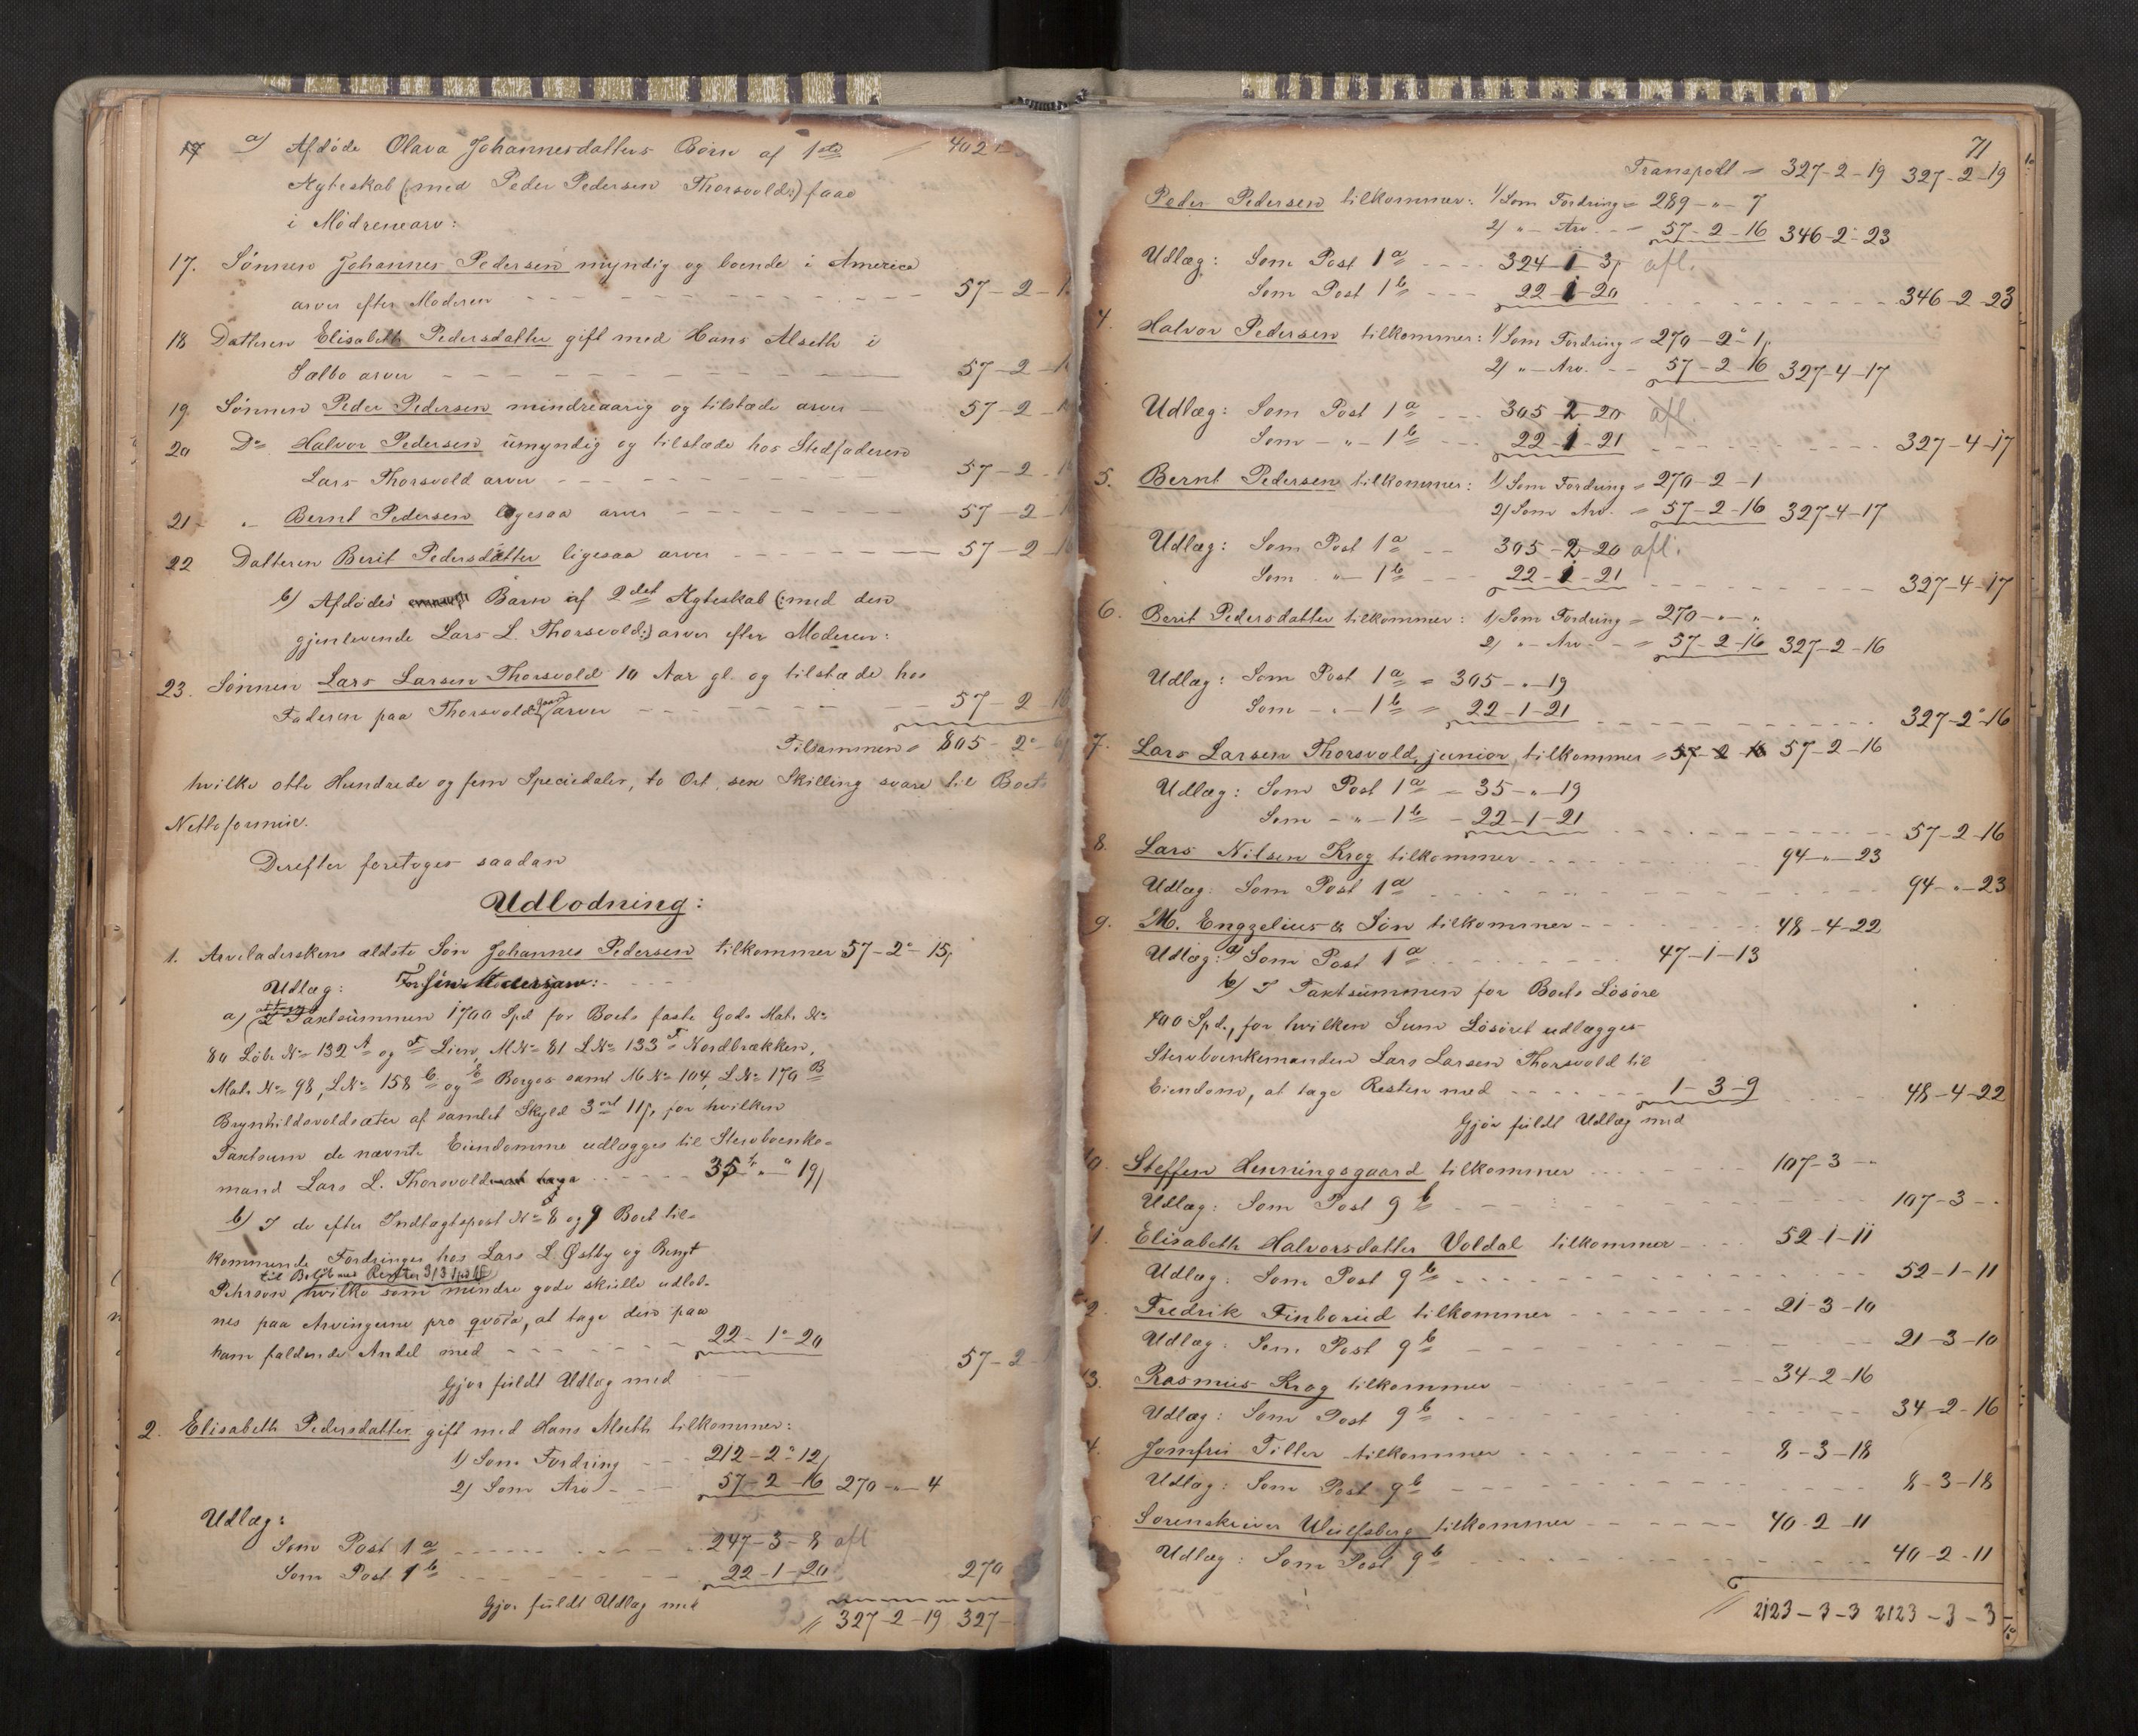 17 a) Afdöde Olava Johannesdatters Börn af 1ste 402
Ægteskab (med Peder Pedersen Thorsvold:) faae
i Mödrenearv:
17. Sönnen Johannes Pedersen myndig og boende i America
arver efter Moderen - - - 57 - 2 - 1
18 Datteren Elisabeth Pedersdatter gift med Hans Alseth i
Sælbo arver - - - 57 - 2 - 1
19. Sönnen Peder Pedersen mindreaarig og tilstæde arver - 57 - 2 - 1
20 Do Halvor Pedersen umyndig og tilstæde hos Stedfaderen
Lars Thorsvold arver - - - 57 - 2 - 1
21 - " - Bernt Pedersen ligesaa arver - - - 57 - 2 - 1
22 Datteren Berit Pedersdatter ligesaa arver - - - 57 - 2 - 16
b) Afdödes Barn af 2det Ægteskab (:med den
gjenlevende Lars L. Thorsvold:) arver efter Moderen:
23. Sönnen Lars Larsen Thorsvold 10 Aar gl. og tilstæde hos
Faderen paa Thorsvold arver - - - 57 - 2 - 16
Tilsammen = 805 - 2 - 6
hvilke otte Hundrede og fem Speciedaler, to Ort, sex Skilling svare til Boets
Nettoformue.
Derefter foretoges saadan
Udlodning:
1. Arveladerskens ældste Sön Johannes Pedersen tilkommer 57 - 2 - 15
Udlæg: For sin Mödrearv:
a) I Taxtsummen 1700 Spd for Boets faste Gods Mat. No
80 Löbe No 132 A og F Lien, M No 81 L No 133 F Nordbrækken,
Mat. No 98, L No 158 b og E Borgos samt M No 104, L No 170 B
Brynhildsvoldsæter af samlet Skyld 3 ort 11 s, for hvilken
Taxtsum de nævnte Eiendomme udlægges til Stervboenke-
mand Lars L. Thorsvold - - - 35 " " 19
b) I de efter Indtægtspost No 8 og 9 Boet til-
kommende Fordringer hos Lars L. Østby og Bengt
til Belöb med Renter 313
Pehrson, hvilke som mindre gode skulle udlod-
nes paa Arvingerne pro qvota, at tage den paa
ham faldende Andel med - - - 22 - 1 - 20 57 - 2
Gjör fuldt Udlæg med
2. Elisabeth Pedersdatter gift med Hans Alseth tilkommer:
1) Som Fordring - - 212 - 2 - 12
2) Som Arv - - - 57 - 2 - 16 270 - " - 4
Udlæg:
Som Post 1 a - - - 247 - 3 - 8 afl
Som Post 1 b - - - 22 - 1 - 20 270
Gjör fuldt Udlæg med
// 327 - 2 - 19 327 -
71
Transport = 327 - 2 - 19 327 - 2 - 19
Peder Pedersen tilkommer: 1) Som Fordring = 289 - " - 7
2) " - Arv - - = 57 - 2 - 16 346 - 2 - 23
Udlæg: Som Post 1 a - - - 324 - 1 - 3 afl.
Som Post 1 b - - - 22 - 1 - 20 - - - 346 - 2 - 23
4. Halvor Pedersen tilkommer: 1) Som Fordring = 270 - 2 - 1
2) " - Arv. - - 57 - 2 - 16 327 - 4 - 17
Udlæg: Som Post 1 a - - - 305 - 2 - 20 afl.
Som - " - 1 b - - - 22 - 1 - 21 - - - 327 - 4 - 17
5. Bernt Pedersen tilkommer: 1) Som Fordring = 270 - 2 - 1
2) Som Arv. = 57 - 2 - 16 327 - 4 - 17
Udlæg: Som Post 1 a - - 305 - 2 - 20 afl.
Som " - 1 b - - - 22 - 1 - 21 - - - 327 - 4 - 17
6. Berit Pedersdatter tilkommer: 1) Som Fordring = 270 - " - "
2) " - Arv - = 57 - 2 - 16 327 - 2 - 16
Udlæg: Som Post 1 a = 305 - " - 19
Som - " - 1 b = 22 - 1 - 21 - - - 327 - 2 - 16
7. Lars Larsen Thorsvold, junior, tilkommer = 57 - 2 - 16 57 - 2 - 16
Udlæg: Som Post 1 a = 35 - " - 19
Som - " - 1 b - 22 - 1 - 21 - - - 57 - 2 - 16
8. Lars Nilsen Krog tilkommer - - - 94 - " - 23
Udlæg: Som Post 1 a - - - 94 - " - 23
9. M. Engzelius & Sön tilkommer - - - 48 - 4 - 22
Udlæg: a) Som Post 1 a - - - 47 - 1 - 13
b) I Taxtsummen for Boets Lösöre
400 Spd., for hvilken Sum Lösöret udlægges
Stervboenkemanden Lars Larsen Thorsvold til
Eiendom, at tage Resten med - - - 1 - 3 - 9 - - - 48 - 4 - 22
Gjör fuldt Udlæg med
10. Steffen Henningsgaard tilkommer - - - 107 - 3 - "
Udlæg: Som Post 9 b - - - 107 - 3 - "
11. Elisabeth Halvorsdatter Voldal tilkommer - - - 52 - 1 - 11
Udlæg: Som Post 9 b - - - 52 - 1 - 11
12. Fredrik Finborud tilkommer - - - 21 - 3 - 10
Udlæg: Som Post 9 b - - - 21 - 3 - 10
13. Rasmus Krog tilkommer - - - 34 - 2 - 16
Udlæg: Som Post 9 b - - - 34 - 2 - 16
14. Jomfru Tiller tilkommer - - - 8 - 3 - 18
Udlæg: Som Post 9 b - - - 8 - 3 - 18
Sorenskriver Wulfsberg tilkommer - - - 40 - 2 - 11
Udlæg: Som Post 9 b - - - 40 - 2 - 11
// 2123 - 3 - 3 2123 - 3 - 3